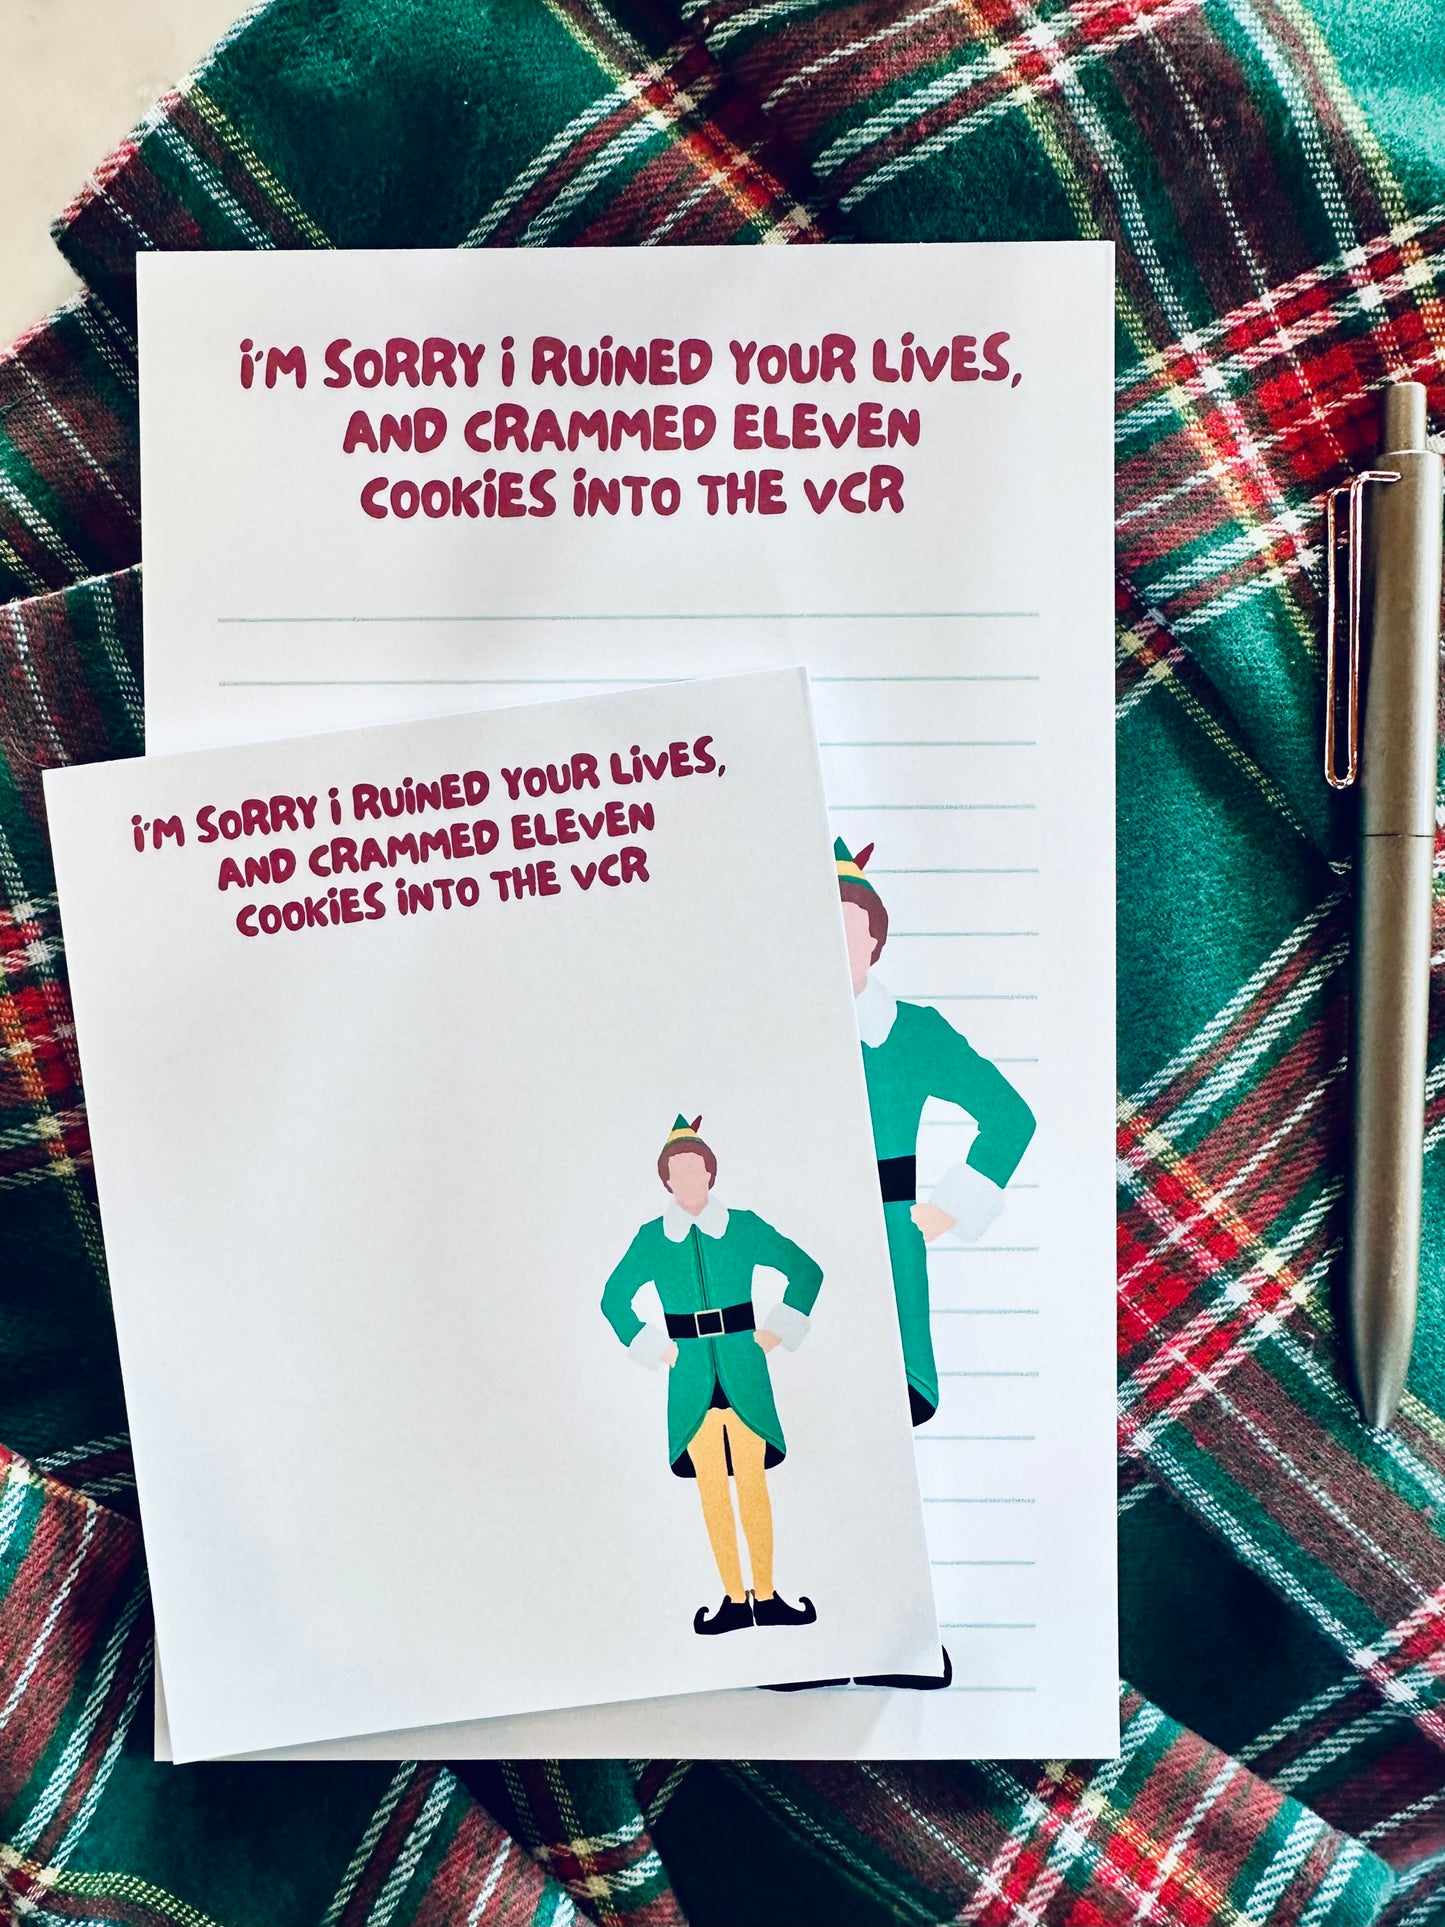 i'M SoRRY i RUiNED YOUR LiVES,
AND CRAMMED ELEVEN
COOKiES iNTO THE VCR
i'M SoRRY i RUiNED YOUR LiVES,
AND CRAMMED ELEVEN
COOKiES iNTO THE VCR